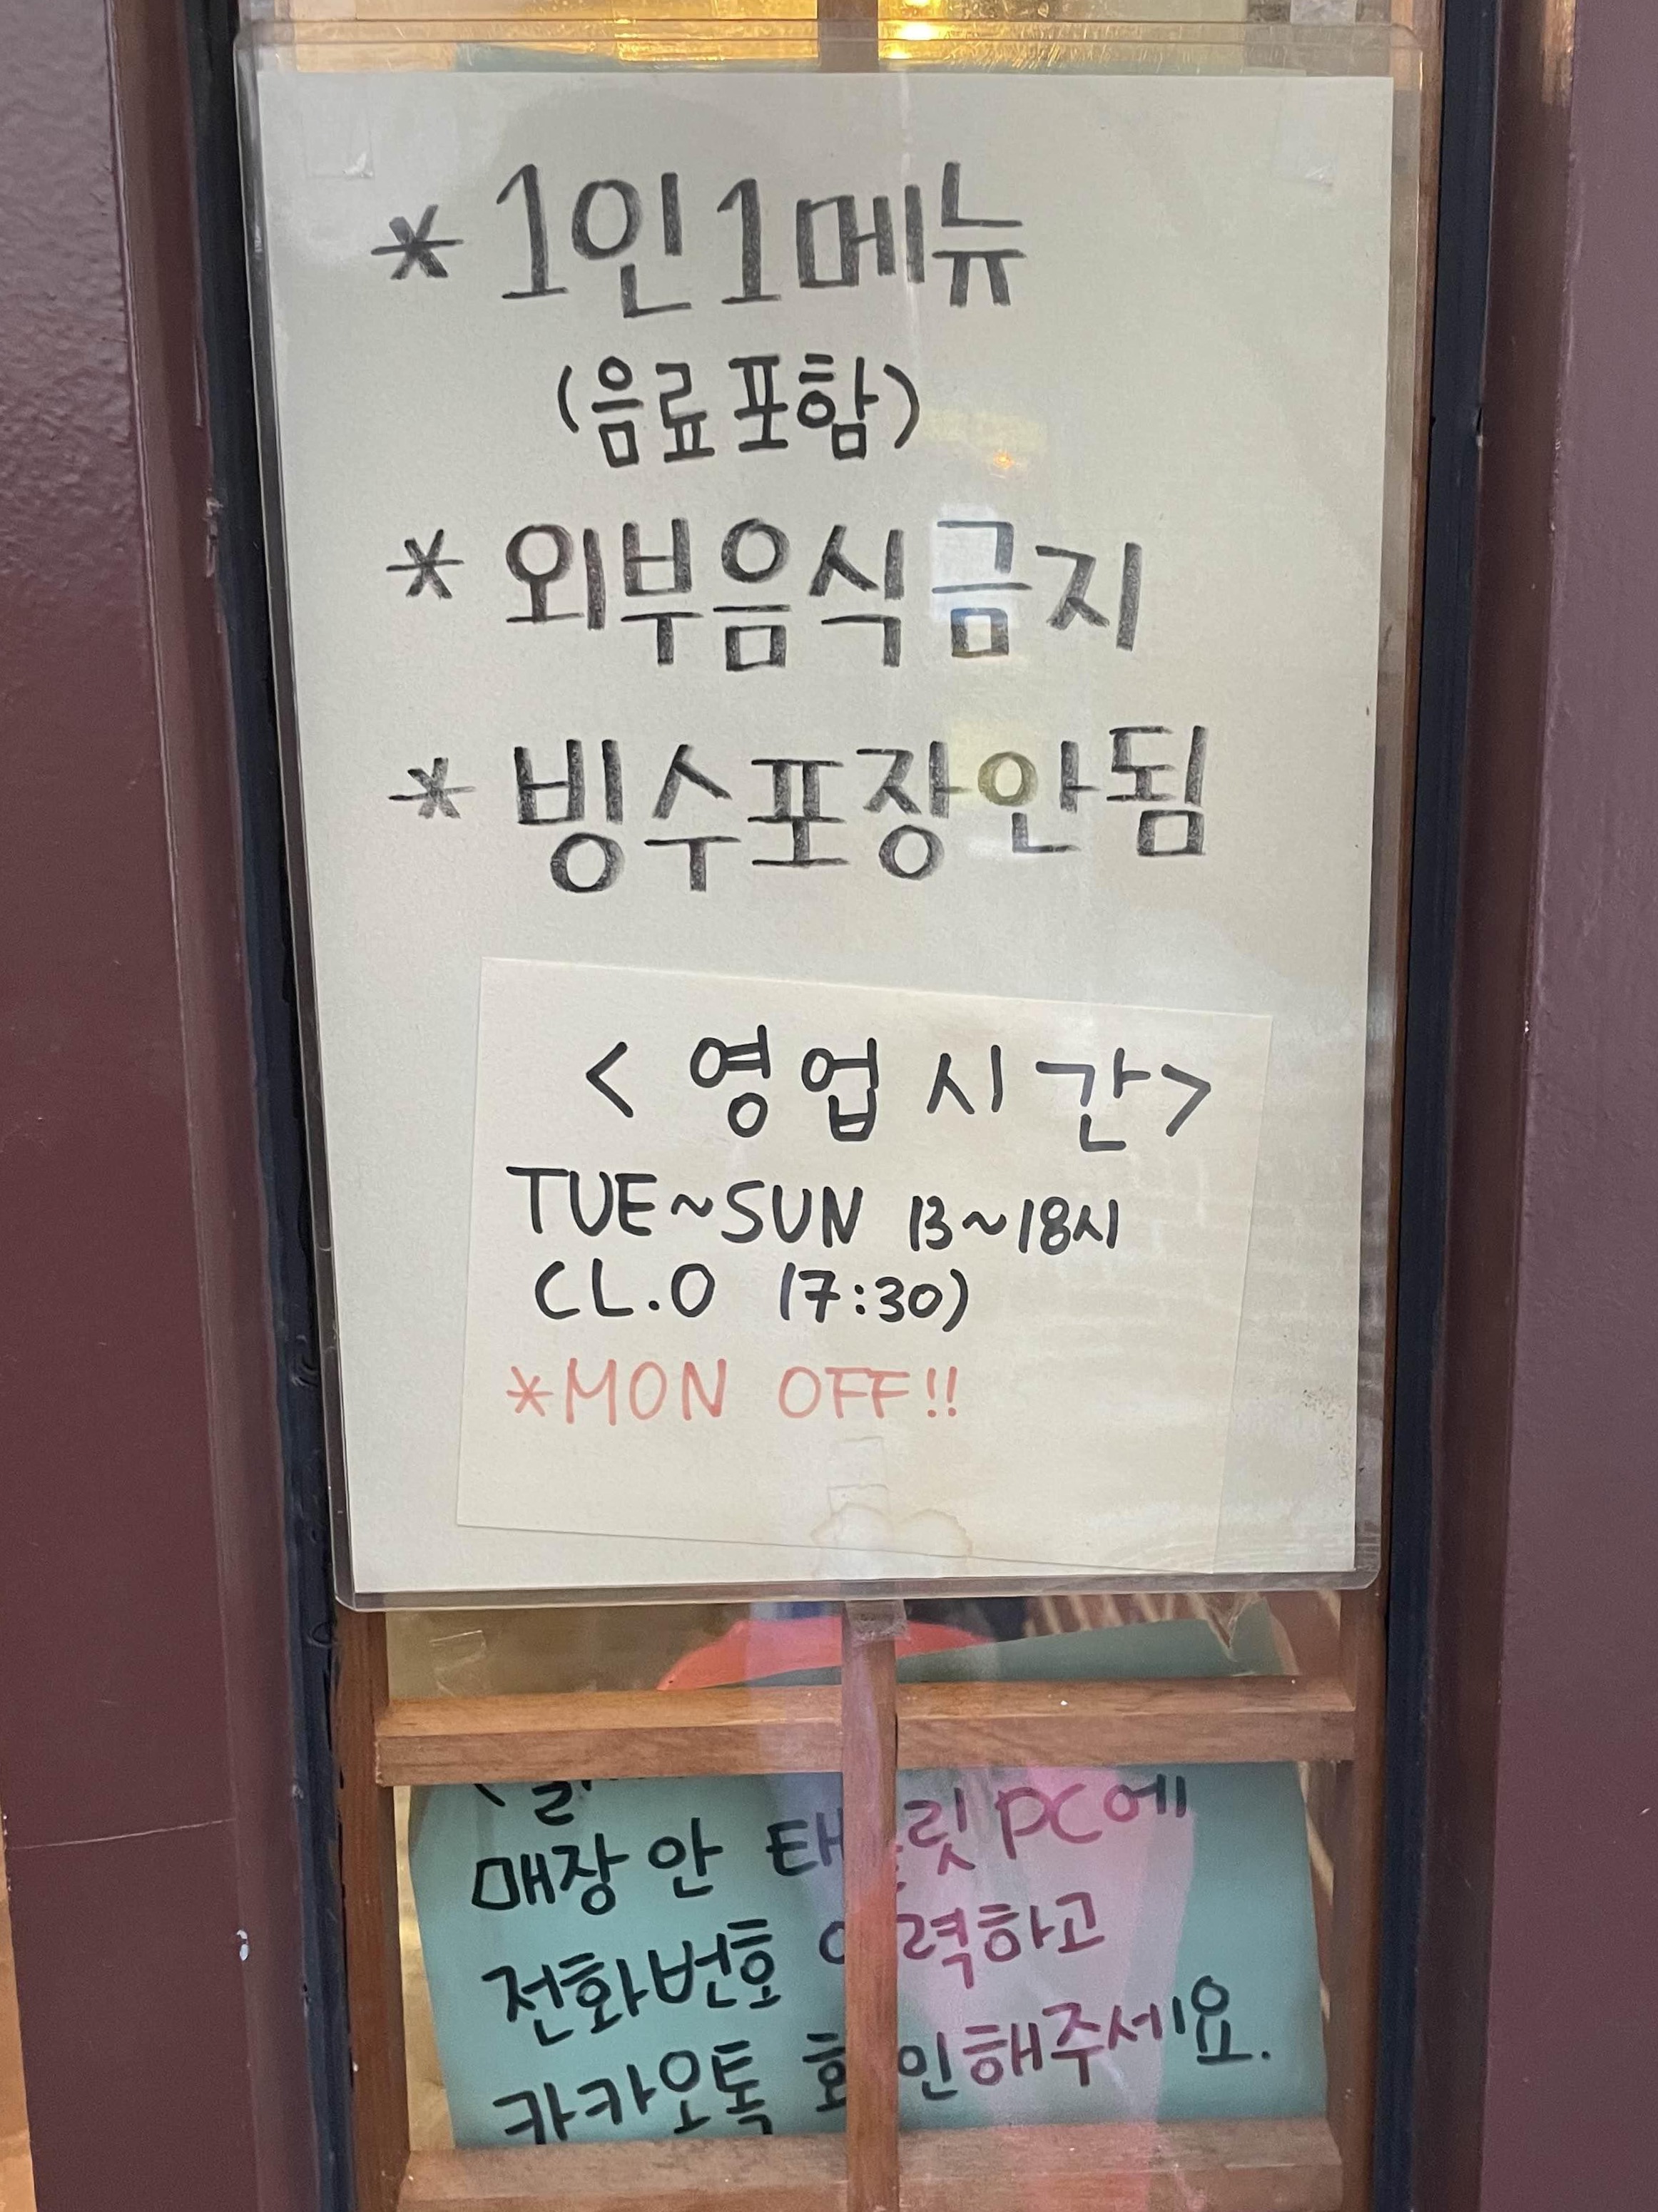 * 1인 1메뉴
(음료포함)
* 외부음식금지
* 빙수포장안됨
< 영업시간>
TUE~SUN 13~18시
CL.O 17:30)
*MON OFF!!
매장 안 태블릿PC에
전화번호 입력하고
카카오톡 확인해주세요.